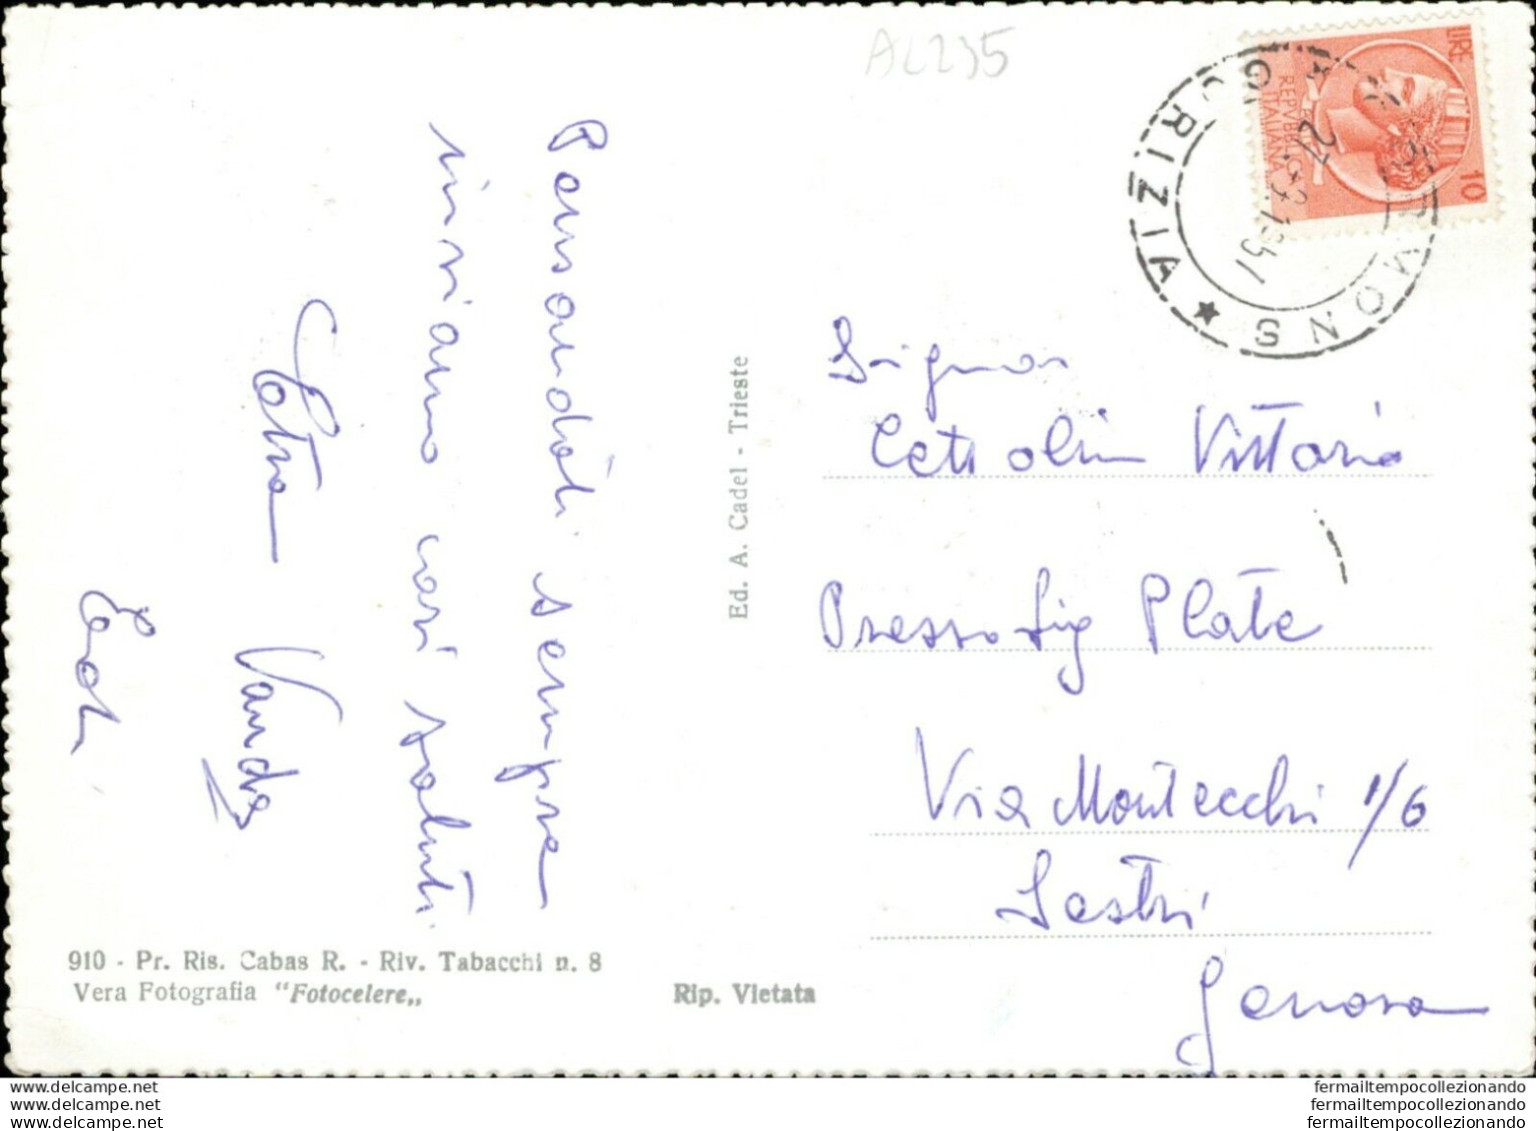 AL235
LIRE 10
REPVBBLICA
ITALIANA
CORMONS
★ GORIZIA ★
Pensandoti sempre
inviamo cari saluti
Vanda
Signor
Cettolin Vittorio
Presso Sig Plate
Via Montecchi 1/6
Sestri
Genova
Ed. A. Cadel - Trieste
910 - Pr. Ris. Cabas R. - Riv. Tabacchi n. 8
Vera Fotografia "Fotocelere„
Rip. Vietata
www.delcampe.net
www.delcampe.net
www.delcampe.net
fermailtempocollezionando
fermailtempocollezionando
fermailtempocollezionando